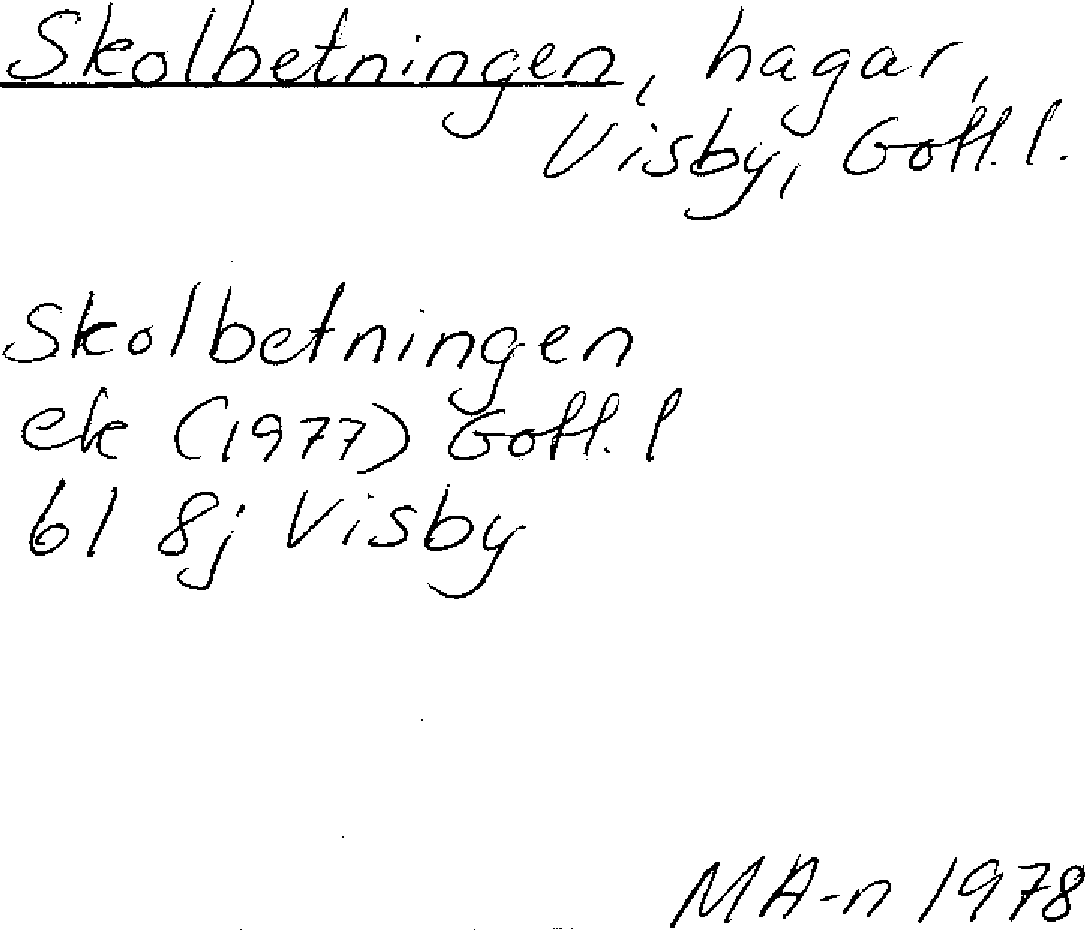 Skolbetningen, hagar,
Visby, Gotl. l.
Skolbetningen
ek (1977) Gotl. l
6I 8j Visby
MA-n 1978